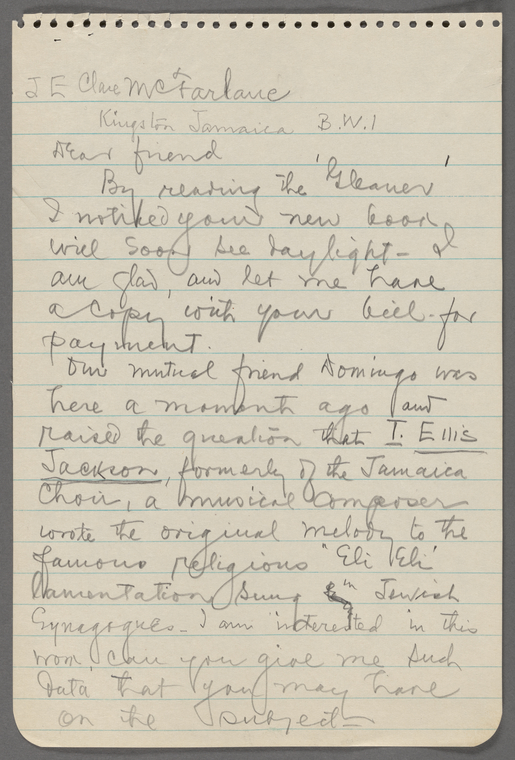 J E Clare McFarlane
Kingston Jamaica B.W.I
Dear friend
By reading the 'Gleaner'
I notiked your new book
will soon see daylight – I
am glad, and let me have
a copy with your bill for
payment.
Our mutual friend Domingo was
here a moment ago and
raised the question that T. Ellis
Jackson, formerly of the Jamaica
Choir, a musical composer
wrote the original melody to the
famous religious "Eli Eli"
lamentation sung in Jewish
Synagogues – I am interested in this
work, can you give me such
data that you may have
on the subject –